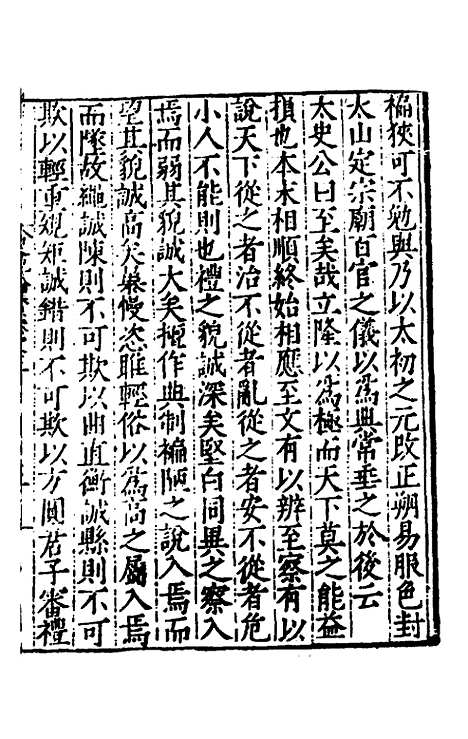 褊狹可不勉與乃以太初之元改正朔易服色封
太山定宗廟百官之儀以爲典常垂之於後云
太史公曰至矣哉立隆以爲極而天下莫之能益
損也本末相順終始相應至文有以辨至察有以
說天下從之者治不從者亂從之者安不從者危
小人不能則也禮之貌誠深矣堅白同異之察入
焉而弱其貌誠大矣擅作典制褊陋之說入焉而
望其貌誠高矣暴慢恣睢輕俗以爲高之屬入焉
而墜故繩誠陳則不可欺以曲直衡誠縣則不可
欺以輕重規矩誠錯則不可欺以方圓君子審禮